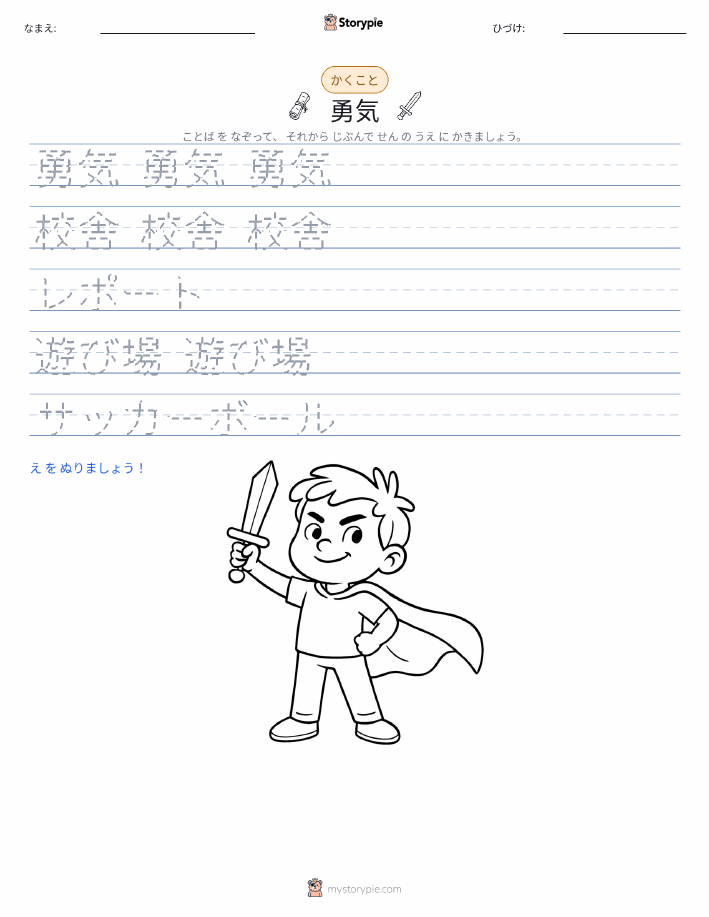 なまえ:
Storypie
ひづけ:
かくこと
勇気
ことば を なぞって、 それから じぶんで せん の うえ に かきましょう。
勇気 勇気 勇気
校舎 校舎 校舎
レポート
遊び場 遊び場
サッカーボール
え を ぬりましょう！
mystorypie.com